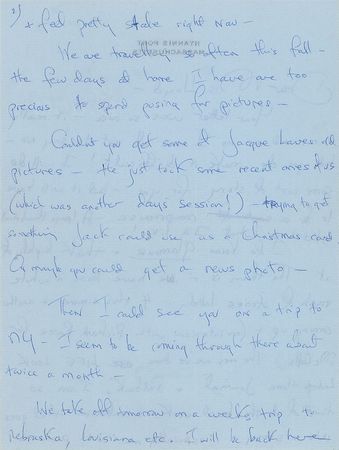 2) & feel pretty stale right now –
We are travelling so often this fall –
the few days at home I have are too
precious to spend posing for pictures –
Couldn't you get some of Jacque Lowes old
pictures – He just took some recent ones of us
(which was another days session!) – trying to get
something Jack could use as a Christmas card
Or maybe you could get a news photo –
Then I could see you on a trip to
NY – I seem to be coming through there about
twice a month –
We take off tomorrow on a weeks trip to
Nebraska, Louisiana etc. I will be back here